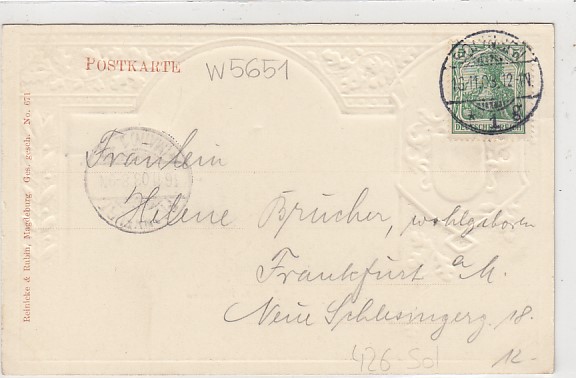 POSTKARTE
W5651
Reinicke & Rubin, Magdeburg Ges. gesch. No. 671
Fräulein
Helene Brücher, wohlgeboren
Frankfurt a. M.
Neue Schlesingerg. 18.
426-Sol
12-